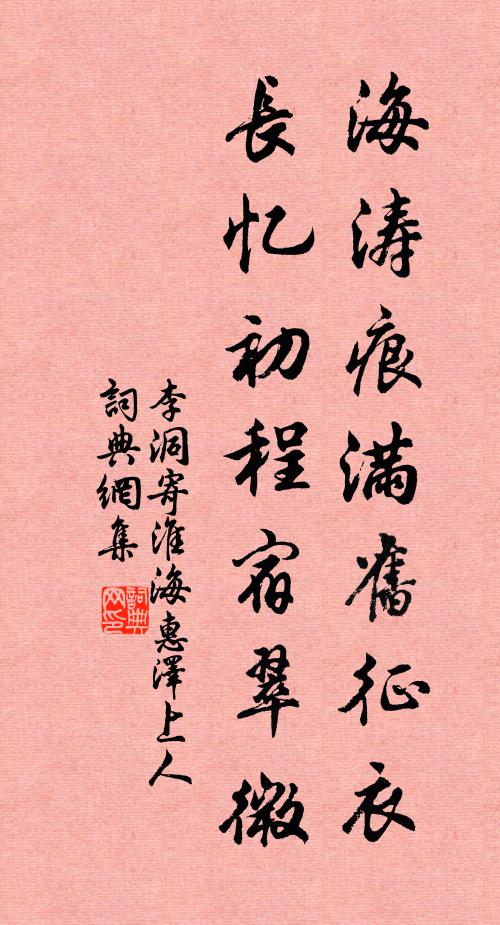 海涛痕满舊征衣
長忆初程宿翠微
李洞寄淮海惠澤上人
詞典網集
詞典
网印